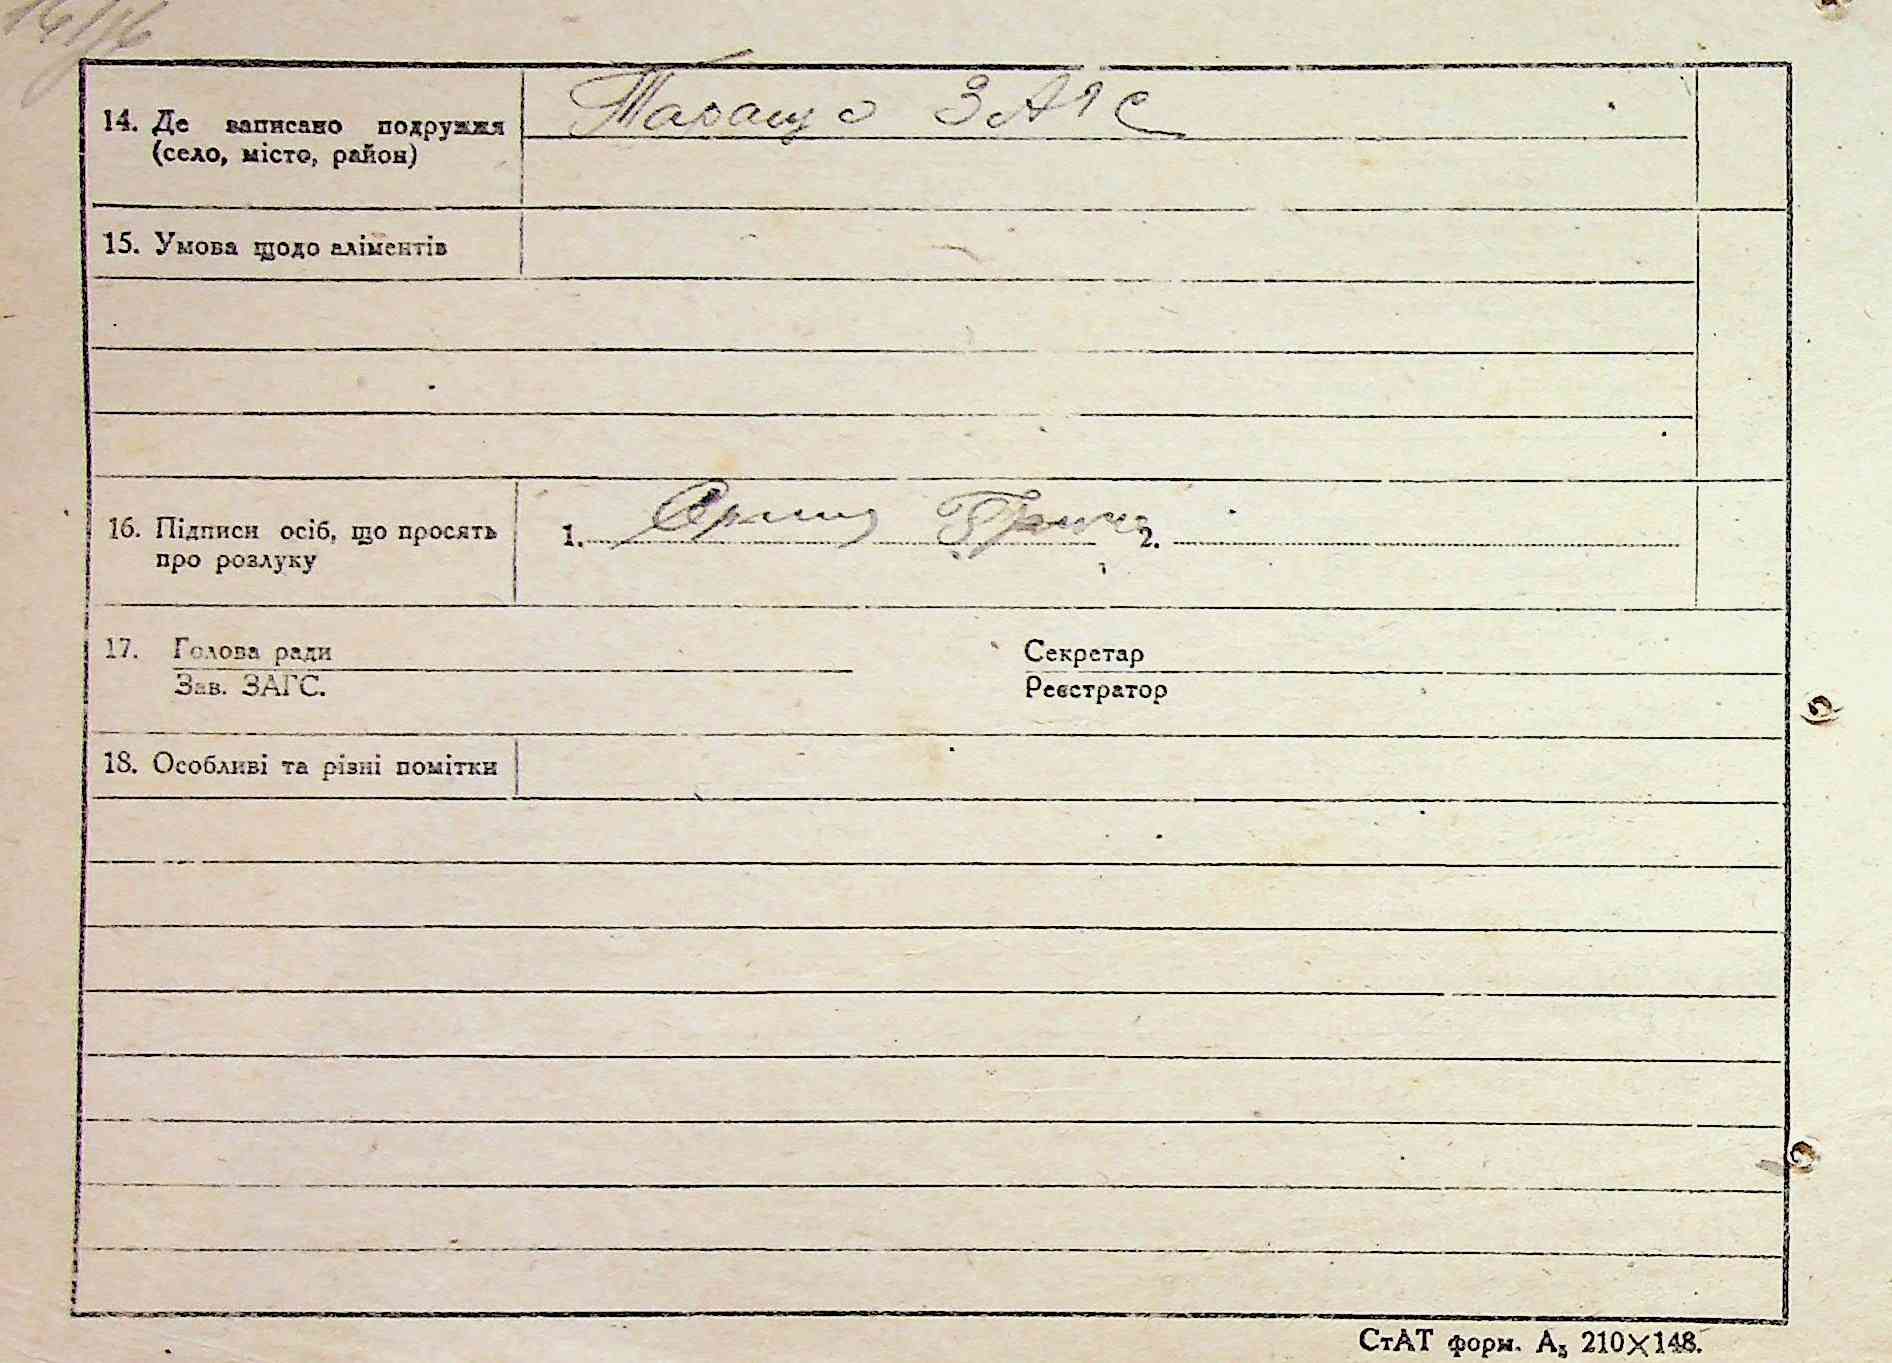 14. Де записано подружжя
(село, місто, район)
Тараща ЗАГС
15. Умова щодо аліментів
16. Підписи осіб, що просять
про розлуку
1.
2.
17. Голова ради
Секретар
Зав. ЗАГС.
Реєстратор
18. Особливі та різні помітки
СтАТ форм. А₅ 210×148.